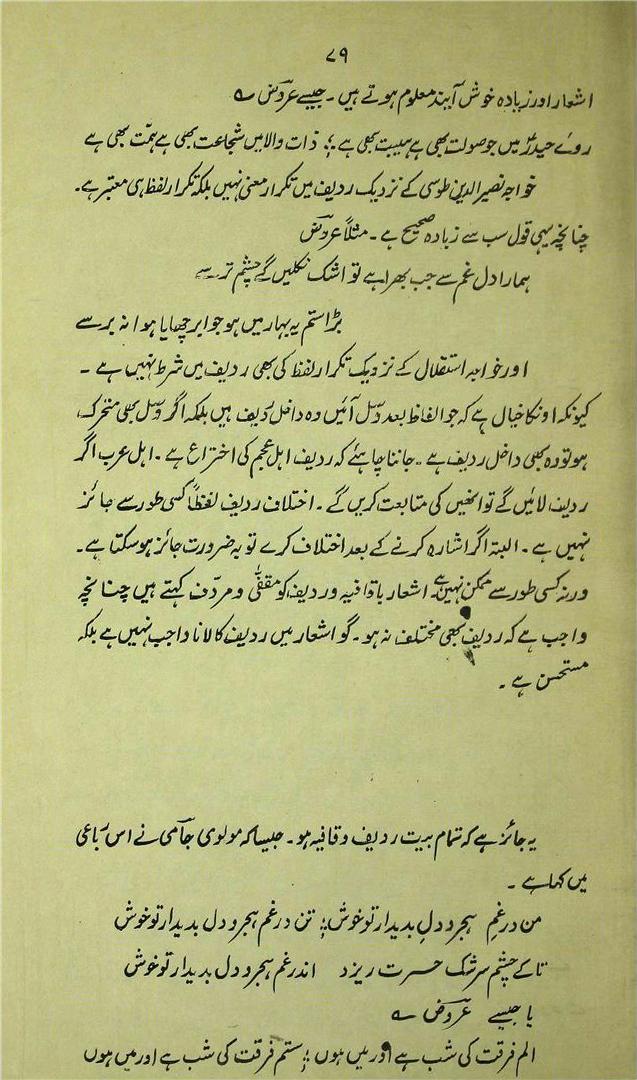 ۷۹
اشعار اور زیادہ خوش آیند معلوم ہوتے ہیں۔ جیسے عروضؔ ؎
روئے حیدرؓ میں جو صولت بھی ہے ہیبت بھی ہے ؛ ذات والا میں شجاعت بھی ہے ہمّت بھی ہے
خواجہ نصیر الدین طوسی کے نزدیک ردیف میں تکرار معنی نہیں بلکہ تکرار لفظ ہی معتبر ہے۔
چنانچہ یہی قول سب سے زیادہ صحیح ہے۔ مثلاً عروضؔ
ہمارا دل غم سے جب بھرا ہے تو اشک نکلیں گے چشم تر سے
بڑا ستم یہ بہار میں ہو جو ابر چھایا ہوا نہ برسے
اور خواجہ استقلال کے نزدیک تکرار لفظ کی بھی ردیف میں شرط نہیں ہے۔
کیونکہ اونکا خیال ہے کہ جو الفاظ بعد وصل آئیں وہ داخل ردیف ہیں بلکہ اگر وصل بھی متحرک
ہو تو وہ بھی داخل ردیف ہے۔ جاننا چاہئے کہ ردیف اہل عجم کی اختراع ہے۔ اہل عرب اگر
ردیف لائیں گے تو انھیں کی متابعت کریں گے۔ اختلاف ردیف لفظاً کسی طور سے جائز
نہیں ہے۔ البتہ اگر اشارہ کرنے کے بعد اختلاف کرے تو بہ ضرورت جائز ہو سکتا ہے۔
ورنہ کسی طور سے ممکن نہیں ہے اشعار باقافیہ و ردیف کو مقفّٰی و مردّف کہتے ہیں چنانچہ
واجب ہے کہ ردیف بھی مختلف نہ ہو۔ گو اشعار میں ردیف کا لانا واجب نہیں ہے بلکہ
مستحسن ہے۔
یہ جائز ہے کہ تمام بیت ردیف و قافیہ ہو۔ جیسا کہ مولوی جامیؔ نے اس رباعی
میں کہا ہے۔
من در غمِ ہجر و دلِ بدیدار تو خوش ؛ تن در غم ہجر و دل بدیدار تو خوش
تا کے چشم سرشک حسرت ریزد اندر غم ہجر و دل بدیدار تو خوش
یا جیسے عروضؔ ؎
الم فرقت کی شب ہے اور میں ہوں ؛ ستم فرقت کی شب ہے اور میں ہوں